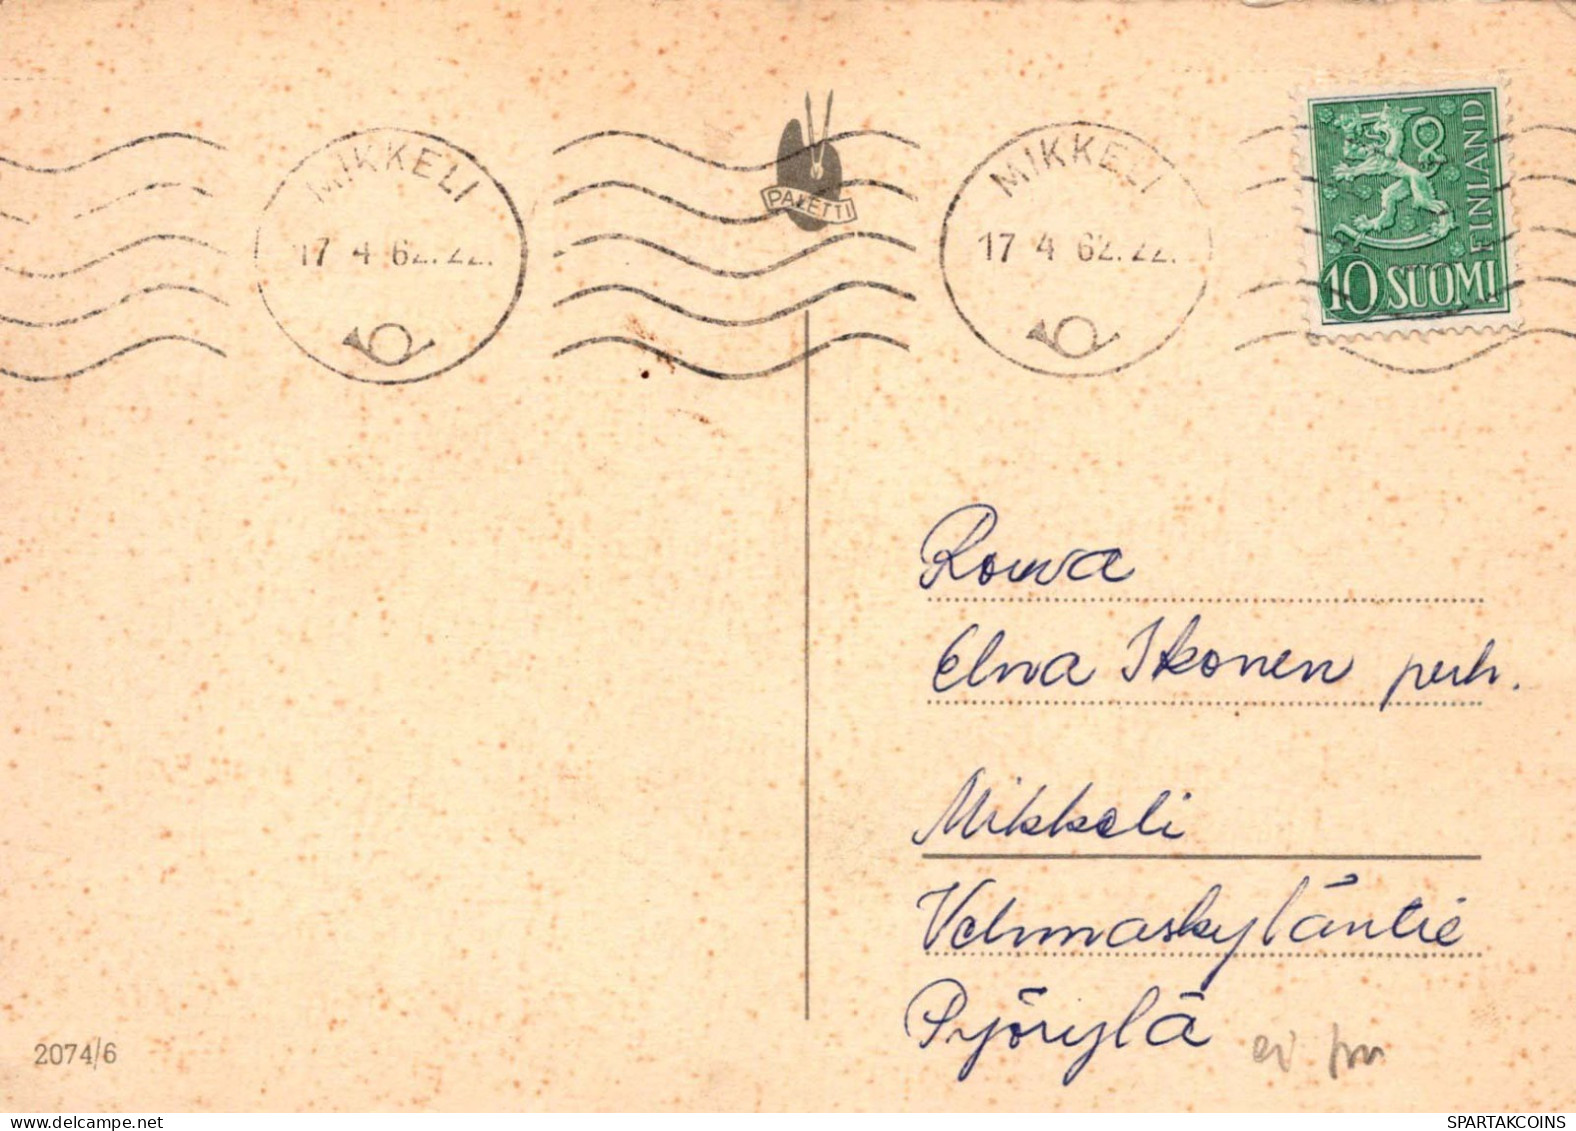 MIKKELI
17 4 62.22.
PALETTI
MIKKELI
17 4 62.22.
FINLAND
10 SUOMI
Rouva
Elna Ikonen perh.
Mikkeli
Vehmaskyläntie
Pyörylä
ei
2074/6
SPARTAKCOINS